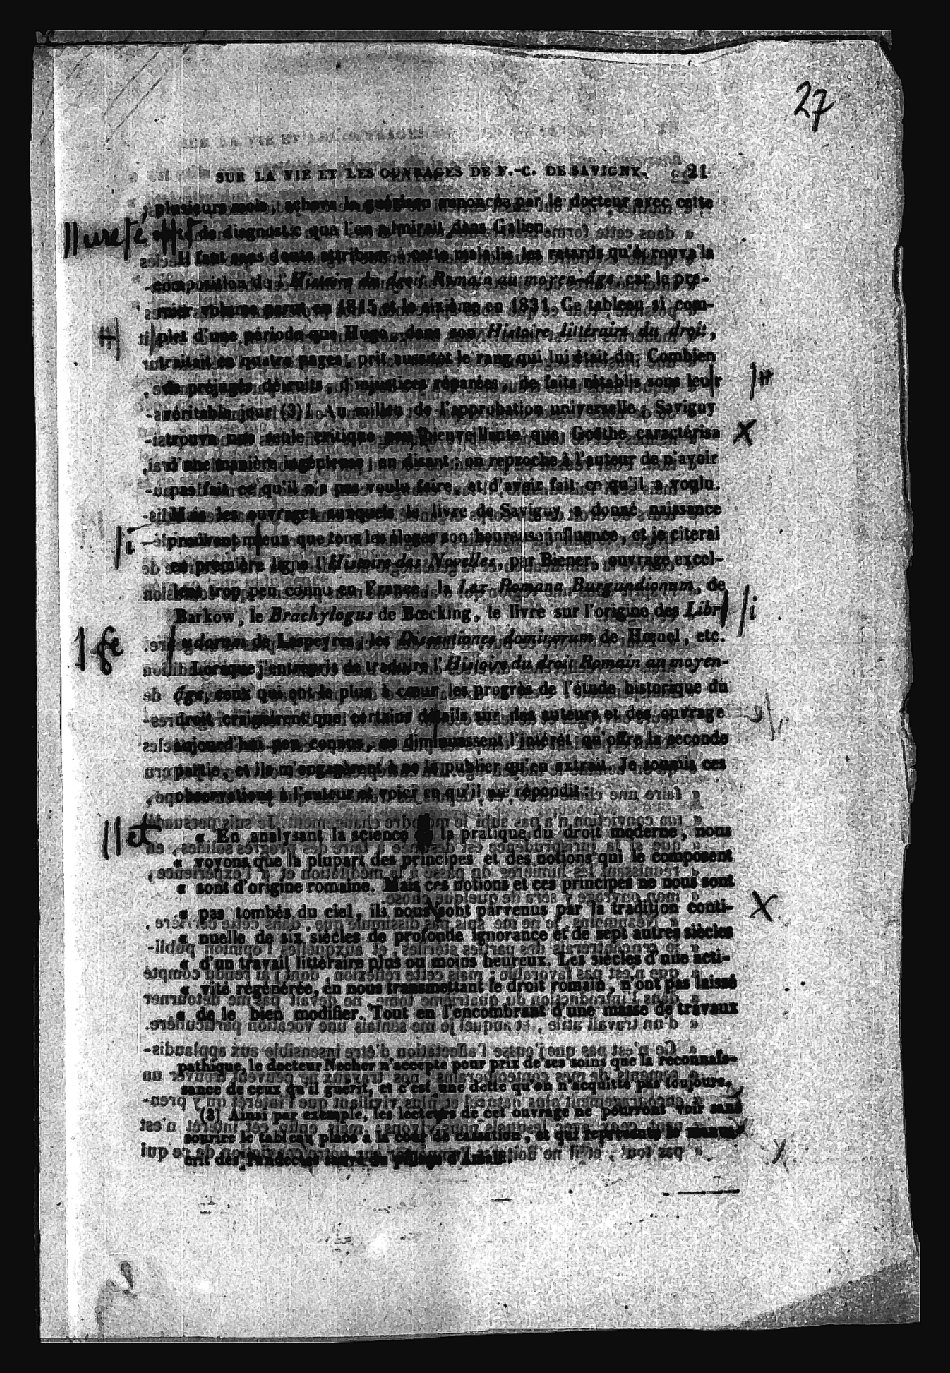 27
SUR LA VIE ET LES OUVRAGES DE F.-C. DE SAVIGNY. 21
plusieurs mois, acheva la guérison annoncée par le docteur avec cette
de diagnostic que l'on admirait dans Galien.
Il faut sans doute attribuer à cette maladie les retards qu'éprouva la
composition de l'Histoire du droit Romain au moyen-âge, car le pre-
mier volume parut en 1815 et le sixième en 1831. Ce tableau si com-
plet d'une période que Hugo, dans son Histoire littéraire du droit,
traitait en quatre pages, prit aussitôt le rang qui lui était dû. Combien
de préjugés détruits, d'injustices réparées, de faits rétablis sous leur
véritable jour (3)! Au milieu de l'approbation universelle, Savigny
trouva une seule critique peu bienveillante que Goëthe caractérisa
d'une manière ingénieuse, en disant: on reproche à l'auteur de n'avoir
pas fait ce qu'il n'a pas voulu faire, et d'avoir fait ce qu'il a voulu.
Mais les ouvrages auxquels le livre de Savigny a donné naissance
prouvent mieux que tous les éloges son heureuse influence, et je citerai
en première ligne l'Histoire des Novelles, par Biener, ouvrage excel-
lent trop peu connu en France, la Lex Romana Burgundionum, de
Barkow, le Brachylogus de Bœcking, le livre sur l'origine des Libr
eudorum de Laspeyres, les Dissentiones dominorum de Hœnel, etc.
Lorsque j'entrepris de traduire l'Histoire du droit Romain au moyen-
âge, ceux qui ont le plus à cœur les progrès de l'étude historique du
droit craignirent que certains détails sur des auteurs et des ouvrage
aujourd'hui peu connus, ne diminuassent l'intérêt qu'offre la seconde
partie, et ils m'engagèrent à ne la publier qu'en extrait. Je soumis ces
observations à l'auteur et voici ce qu'il me répondit:
et
« En analysant la science la pratique du droit moderne, nous
« voyons que la plupart des principes et des notions qui le composent
« sont d'origine romaine. Mais ces notions et ces principes ne nous sont
« pas tombés du ciel, ils nous sont parvenus par la tradition conti-
« nuelle de six siècles de profonde ignorance et de sept autres siècles
« d'un travail littéraire plus ou moins heureux. Les siècles d'une acti-
« vité régénérée, en nous transmettant le droit romain, n'ont pas laissé
« de le bien modifier. Tout en l'encombrant d'une masse de travaux
pathique, le docteur Necher n'accepte pour prix de ses soins que la reconnais-
sance de ceux qu'il guérit, et c'est une dette qu'on n'acquitte pas toujours.
(3) Ainsi par exemple, les lecteurs de cet ouvrage ne pourront voir sans
sourire le tableau placé à la cour de cassation, et qui représente le manus-
crit des Pandectes